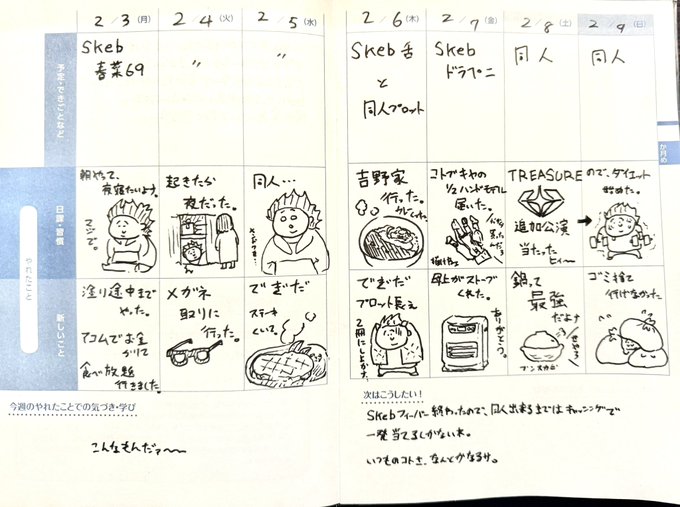 2/3(月)
2/4(火)
2/5(水)
2/6(木)
2/7(金)
2/8(土)
2/9(日)
予定・できごとなど
Skeb
春菜69
〃
〃
Skeb 舌
と
同人プロット
Skeb
ドラプニ
同人
同人
か月め
日課・習慣
朝やって、
夜寝たいよす。
マジで。
起きたら
夜だった。
同人…
吉野家
行った。
コトブキヤの
1/2ハンドモデル
届いた。
TREASURE
追加公演
当たった
ヒィ〜
ので、ダイエット
始めた。
新しいこと
塗り途中まで
やった。
アコムでお金
かりて
食べ放題
行きました。
メガネ
取りに
行った。
でぎだ
ステーキ
くいて。
でぎだ
プロット長え
2冊にしとかす。
母上がストーブ
くれた。
ありがとう。
鍋って
最強
だよナ
せやろ
ゴミ捨て
行けなかった
今週のやれたことでの気づき・学び
こんなもんだァ〜〜
次はこうしたい!
Skebフィーバー終わったので、同人出来るまではキャッシングで
一発当てるしかないネ。
いつものコトさ、なんとかなるサ。